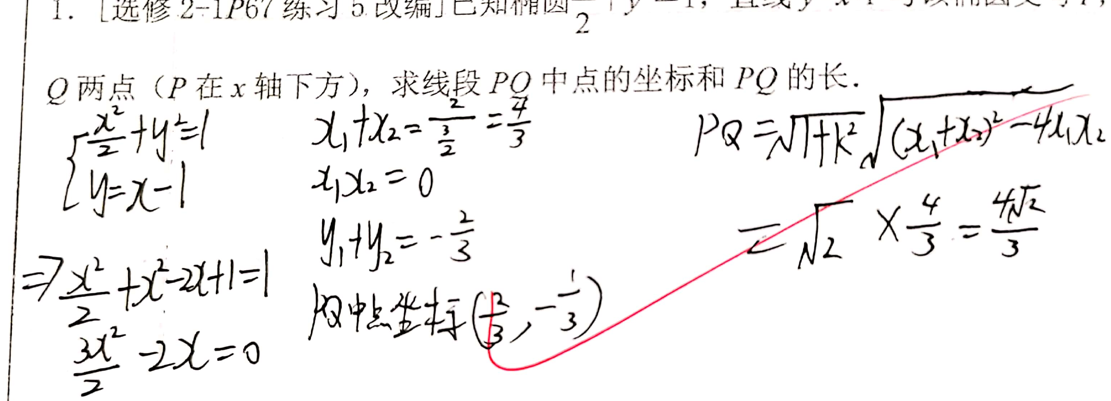 1. [选修 2-1P67 练习 5 改编] 已知椭圆
2
Q 两点（P 在 x 轴下方），求线段 PQ 中点的坐标和 PQ 的长．
{x²/2+y²=1
y=x-1
⇒x²/2+x²-2x+1=1
3x²/2-2x=0
x₁+x₂=2/(3/2)=4/3
x₁x₂=0
y₁+y₂=-2/3
PQ中点坐标(2/3,-1/3)
PQ=√(1+k²)√((x₁+x₂)²-4x₁x₂
=√2×4/3=4√2/3